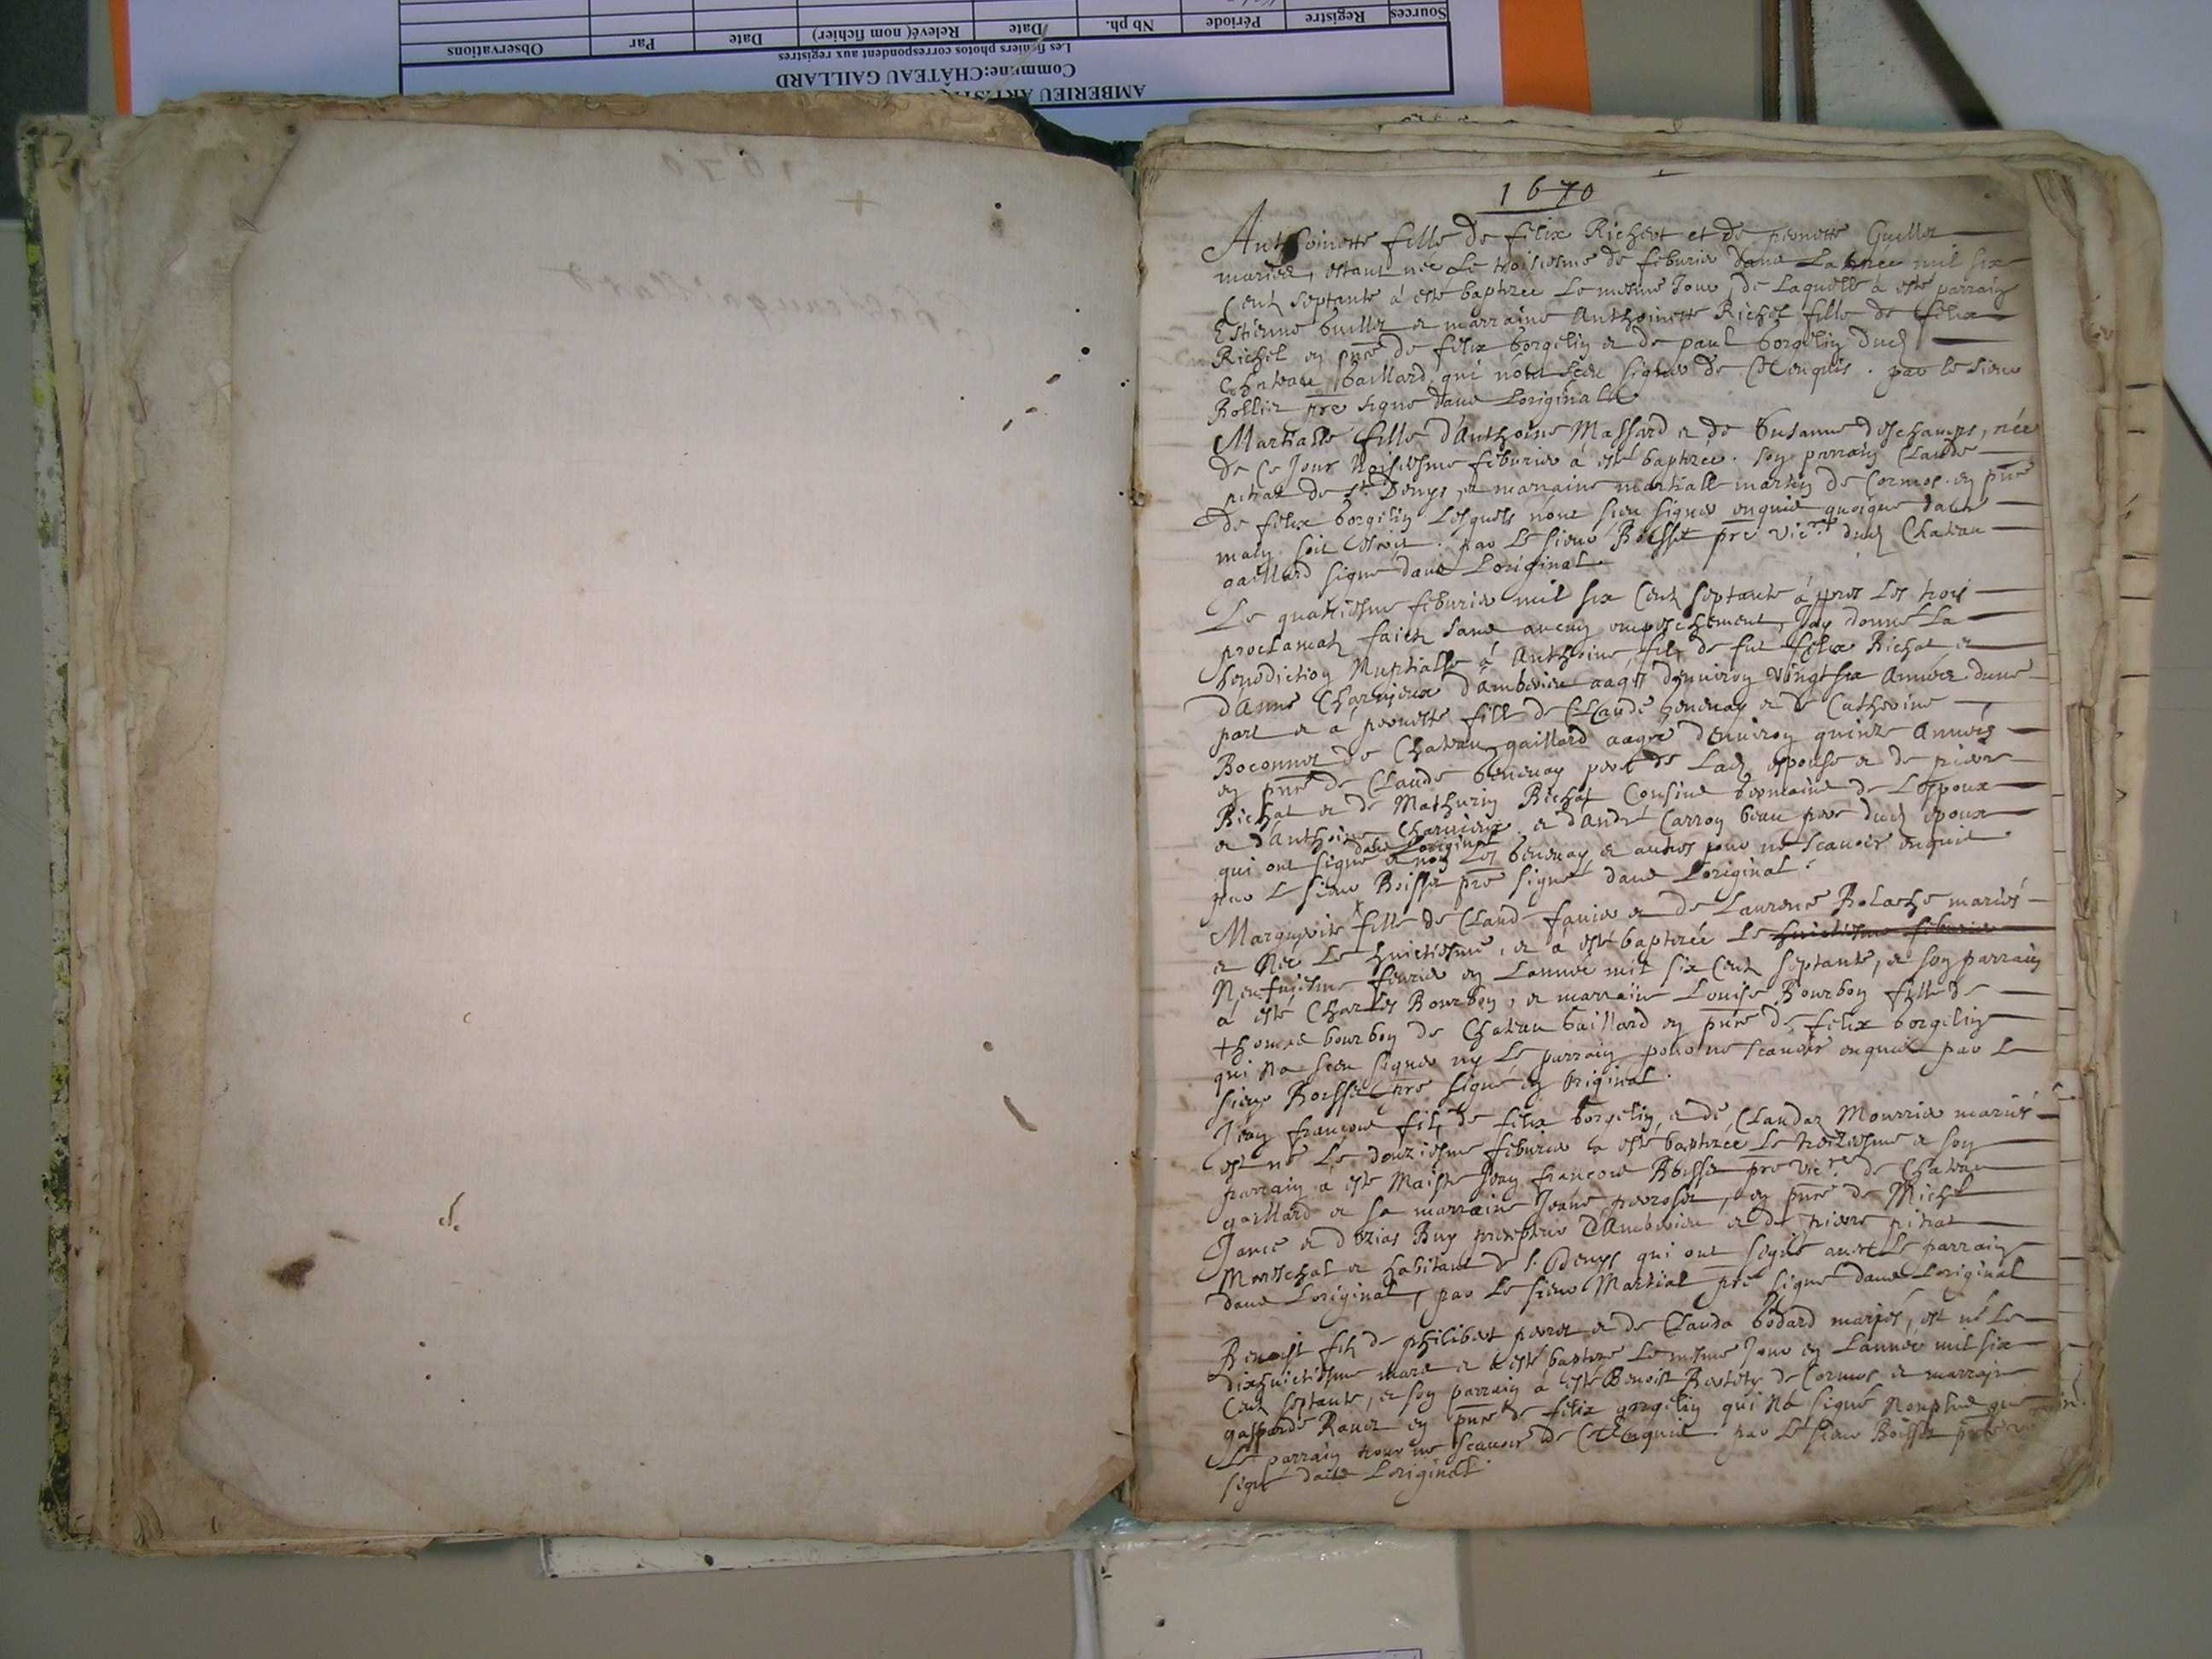 AMBERIEU
Commune: CHÂTEAU GAILLARD
Les fichiers photos correspondent aux registres
Sources Registre Période Nb ph. Date Relevé( nom fichier) Date Par Observations
1670
1670
Anthoinette fille de felix Richert et de pernette Guillet
mariez, estant née Le troisiesme de feburier dans La
mil six
Cent septante à esté baptizée Le mesme Jour, de Laquelle à esté parrain
Estienne guillet et marraine Anthoinette Richel fille de felix
Richel en pnce de felix borgelin et de paul borgelin dud
Chateau gaillard, qui nont sceu signer de ce enquis . par le sieur
pre signe dans Loriginal
Martialle fille d'Anthoine Massard et de Susanne deschamps, née
de ce Jour troisiesme feburier à esté baptizée . son parrain Claude
pitrat de st. Denys, et marraine martialle martin de Cormos . en pnce
de felix borgelin Lesquels nont sceu signer enquis quoique dans
main soit . par Le sieur Boisset pre vicre dud Chateau
gaillard signé dans Loriginal
Le quatriesme feburier mil six Cent septante àpres Les trois
proclamat faictz sans aucun empeschement, Jay donné La
benediction Nuptialle à Anthoine filz de feu felix Richat et
d'Anne Charvieux d'Amberieu aagé denviron vingt six Années dune
part et à pernette fille de Claude benenay et de Catherine
Boconnet de Chateau gaillard aagée denviron quinze Années
en pnce de Claude benenay pere de Lad espouse et de pierre
Richat et de Mathurin Richat Cousins germains de Lespoux
et d'Anthoine Charvieux et d'André Carron beau pere dud epoux
dans Loriginal
qui ont signé et non Les benenay et autres pour ne scavoir enquis
par le sieur Boisset pre signé dans Loriginal .
Marguerite fille de Claude favier et de Laurence Rolache mariés
et Née Le huictiesme, et à esté baptizée Le huictiesme feburier
Neufuiesme feurier en Lannée mil six Cent septante, et son parrain
à esté Charles Bourbon, et marraine Louise Bourbon fille de
thomas bourbon de Chateau gaillard en pnce de felix borgelin
qui na sceu signer ny Le parrain pour ne scavoir enquis par le
sieur Boisset pre signé en original .
Jean francois filz de felix borgelin, et de Clauda Mourrier mariés
est né Le douziesme feburier à esté baptizée Le treiziesme et son
parrain a esté Maistre Jean francois Boisset pre vicre de Chateau
gaillard et sa marraine Jeane peroset, en pnce de Michel
Jance et d Buy precepteur d'Amberieu et de pierre pitrat
Mareschal et habitant de s. Denys qui ont signé avec Le parrain
dans Loriginal, par Le sieur Martial pre signé dans Loriginal
Benoist filz de philibert perret et de Clauda bodard mariés, est né Le
dixhuictiesme mars et à esté baptizé Le mesme Jour en Lannée mil six
Cent septante, et son parrain à esté Benoist de Cormos et marraine
gasparde Ravet en pnce de felix gorgelin qui Na signé Nonplus que
Le parrain pour ne scavoir de ce enquis . par Le sieur Boisset pre
signé dans Loriginal .